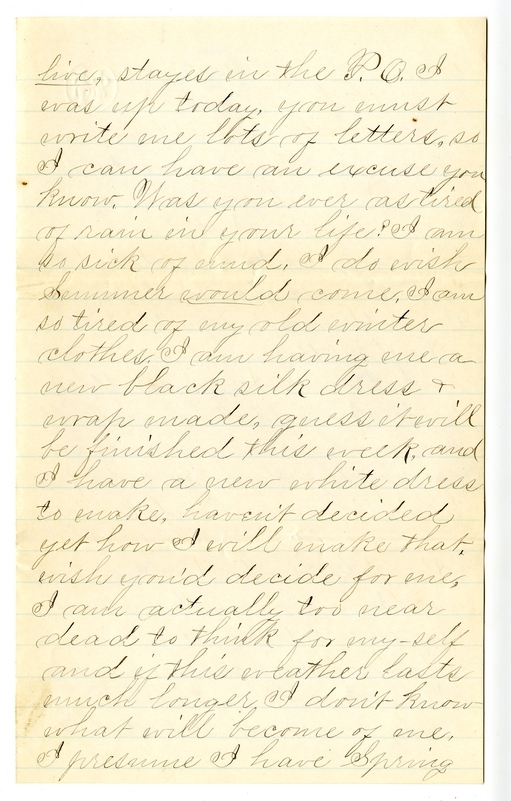 live, stayes in the P.O. I
was up today, you must
write me lots of letters, so
I can have an excuse you
know. Was you ever as tired
of rain in your life? I am
so sick of mud. I do wish
Summer would come, I am
so tired of my old winter
clothes. I am having me a
new black silk dress &
wrap made, guess it will
be finished this week, and
I have a new white dress
to make, haven't decided
yet how I will make that,
wish you'd decide for me,
I am actually too near
dead to think for my-self
and if this weather lasts
much longer I don't know
what will become of me.
I presume I have Spring